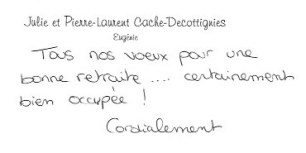 Julie et Pierre-Laurent Cache-Decottignies
Eugénie
Tous nos voeux pour une
bonne retraite .... certainement
bien occupée !
Cordialement